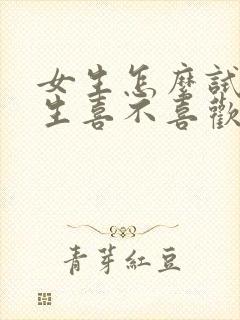 女生怎麼試
生喜不喜歡
青芽紅豆